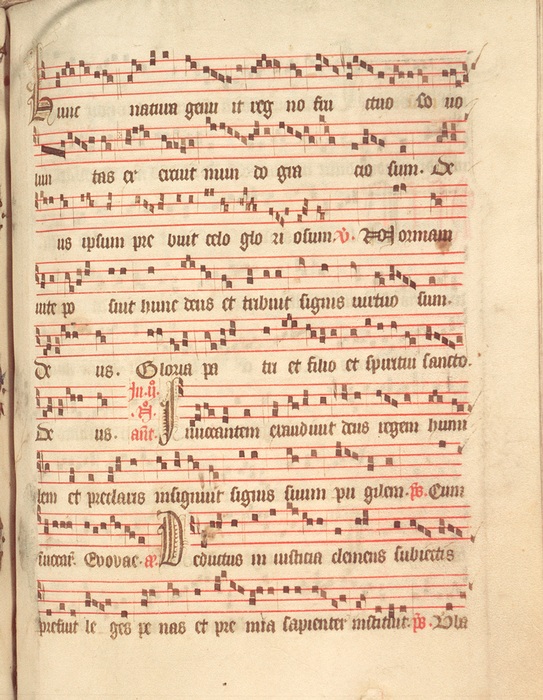 Hunc natura genu it reg no fru ctuo so uo
lun tas cr exiuit mun do gra cio sum. De
us ipsum pre buit celo glo ri osum. v. Normam
uite po suit hunc deus et tribuit signis uirtuo sum.
De us. Gloria pa tri et filio et spiritui sancto.
De us. In .ij. N. ant. Inuocantem exaudiuit deus regem humi
lem et preclaris insigniuit signis suum pu gilem. ps. Cum
inuocar. Evovae. a. Deductus in iusticia clemens subiectis
prefuit le ges pe nas et pre mia sapienter instituit. ps. Uba